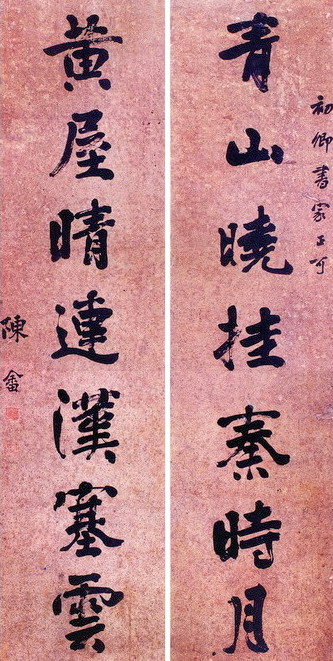 初卿書家正可
青山曉挂秦時月
黃屋晴連漢塞雲
陳